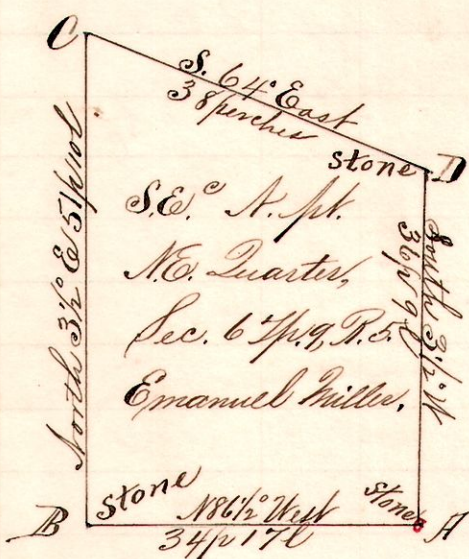 C
S. 64° East
38 perches
stone D
North 3½° E 51p 10l
S.E.c N. pt.
N.E. Quarter,
Sec. 6 Tp. 9, R. 5
Emanuel Miller.
South 3½° W
36p 9l
B stone
N86½° West
34p 17l
stone A